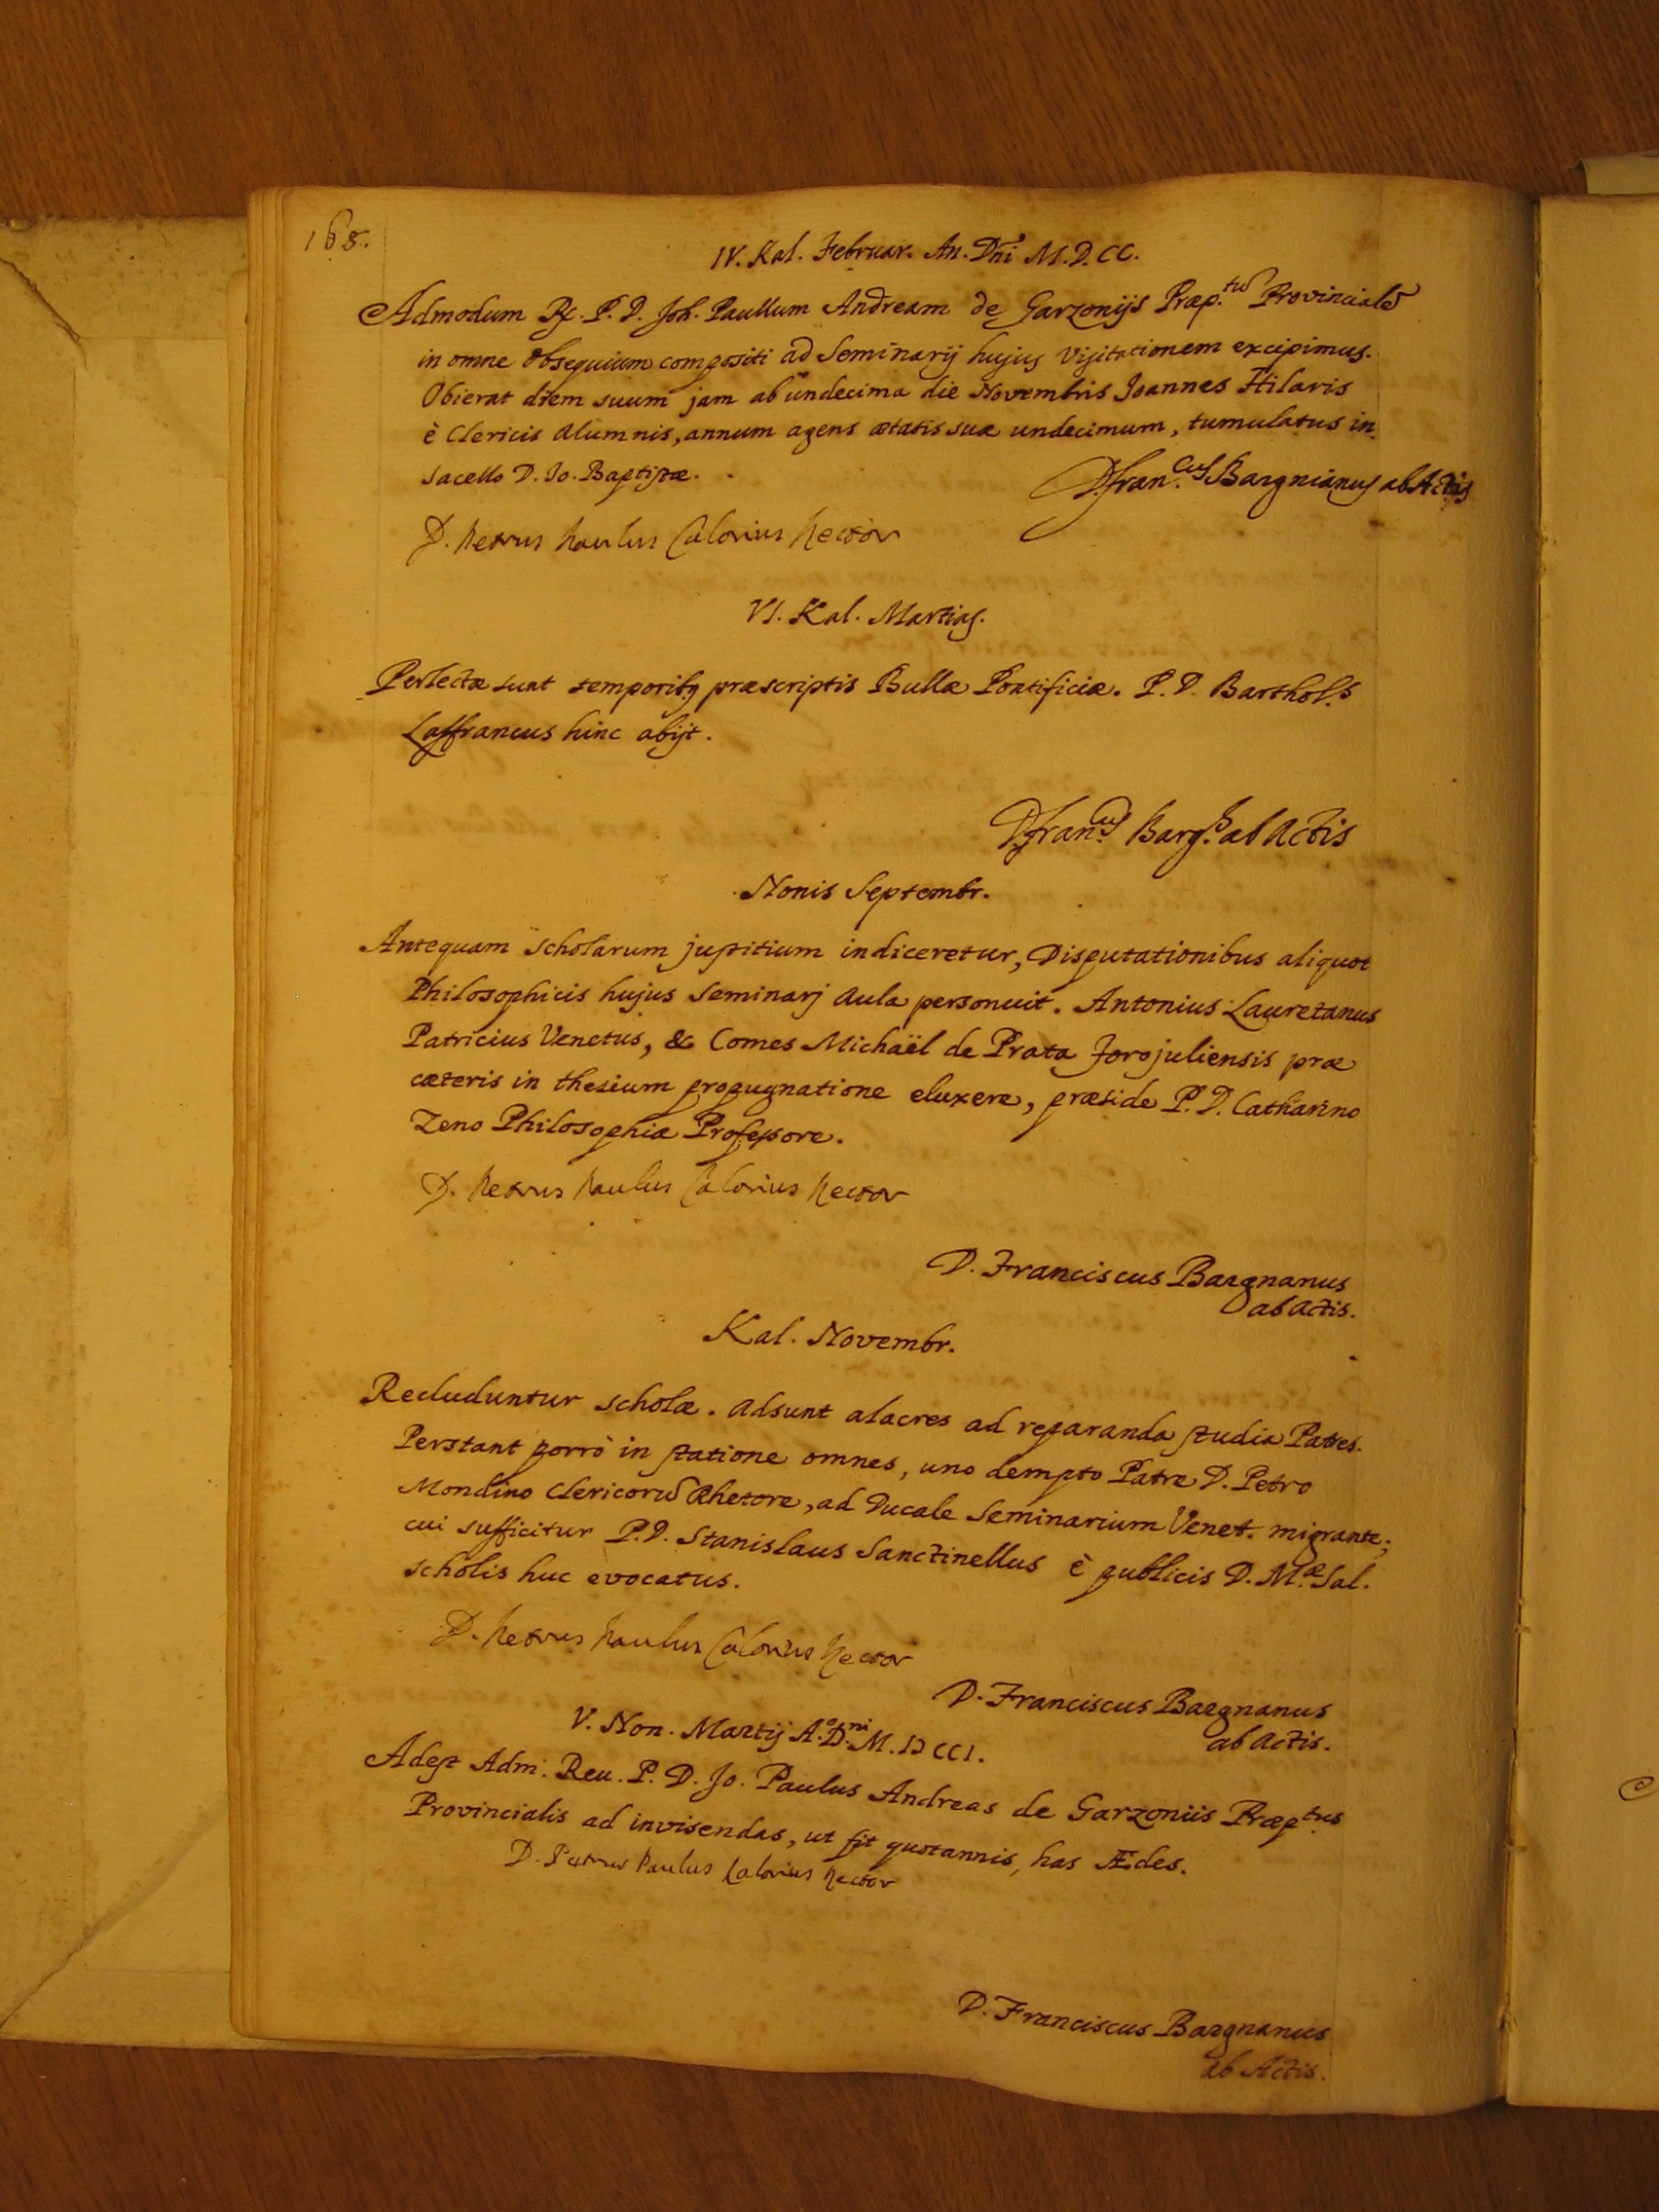 168.
IV. Kal. Februar. An. Dñi M.D.CC.
Admodum R. P. D. Joh. Paullum Andream de Garzonijs Præp.tũ Provincialẽ
in omne obsequium compositi ad Seminarij hujus Visitationem excipimus.
Obierat diem suum jam ab undecima die Novembris Joannes Hilaris
è Clericis Alumnis, annum agens ætatis suæ undecimum, tumulatus in
sacello D. Jo. Baptistæ.
D. Fran.cus Bargnianus ab Actis
D. Petrus Paulus Calorius Rector
VI. Kal. Martias.
Perlectæ sunt temporibq præscriptis Bullæ Pontificiæ. P. D. Barthol.s
Laffrancus hinc abijt.
D. Fran.cus Barg.s ab Actis
Nonis Septembr.
Antequam scholarum justitium indiceretur, Disputationibus aliquot
Philosophicis hujus Seminarj Aula personuit. Antonius Lauretanus
Patricius Venetus, & Comes Michaël de Prata Forojuliensis præ
cæteris in thesium propugnatione eluxere, præside P. D. Catharino
Zeno Philosophiæ Professore.
D. Petrus Paulus Calorius Rector
D. Franciscus Bargnanus
ab Actis.
Kal. Novembr.
Recluduntur scholæ. Adsunt alacres ad reparanda studia Patres.
Perstant porrò in statione omnes, uno dempto Patre D. Petro
Mondino Clericorũ Rhetore, ad Ducale Seminarium Venet. migrante;
cui sufficitur P. D. Stanislaus Sanctinellus è publicis D. M.æ Sal.
scholis huc evocatus.
D. Petrus Paulus Calorius Rector
D. Franciscus Bargnanus
ab Actis.
V. Non. Martij A.o D.ni M.DCCI.
Adest Adm. Reu. P. D. Jo. Paulus Andreas de Garzoniis Præp.tus
Provincialis ad invisendas, ut fit quotannis, has Ædes.
D. Petrus Paulus Calorius Rector
D. Franciscus Bargnanus
ab Actis.